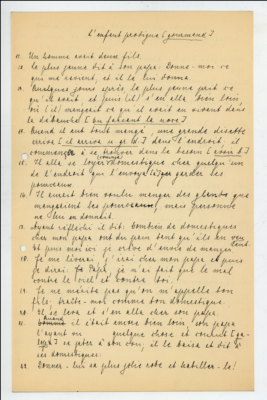 L'enfant prodigue [gourmand]
11. Un homme avait deux fils.
12. Le plus jeune dit à son papa: Donne-moi ce
qui me revient, et il le lui donna.
13. Quelques jours après le plus jeune prit ce
qu'il avait et puis (il) s'en alla bien loin,
où (il) mangea tout ce qu'il avait en vivant dans
la débauche [en faisant la noce]
14. Quand il eut tout mangé, une grande disette
arriva [il arriva] dans l'endroit, il
commença à se trouver dans le besoin [à avoir]
15. Il alla se louer domestique chez quelqu'un
(comme)
de l'endroit qui l'envoya garder les
pourceaux.
16. Il aurait bien voulu manger des glands que
mangeaient les pourceaux, mais personne
ne lui en donnait.
17. Ayant réfléchi il dit: combien de domestiques
chez mon papa ont du pain tant qu'ils en veu
lent
et puis moi ici je crève d'envie de manger
18. Je me lèverai, j'irai chez mon papa et puis
je dirai: Papa, j'ai fait que le mal
contre le ciel et contre toi.
19. Je ne mérite pas qu'on m'appelle ton
fils; traite-moi comme ton domestique.
20. Il se leva et s'en alla chez son papa.
Quand
21. comme il était encore bien loin, son papa
l'ayant vu quelque chose et courut
se jeter à son cou; il le baisa et dit à
ses domestiques:
22. Donnez-lui sa plus jolie robe et habillez-le!